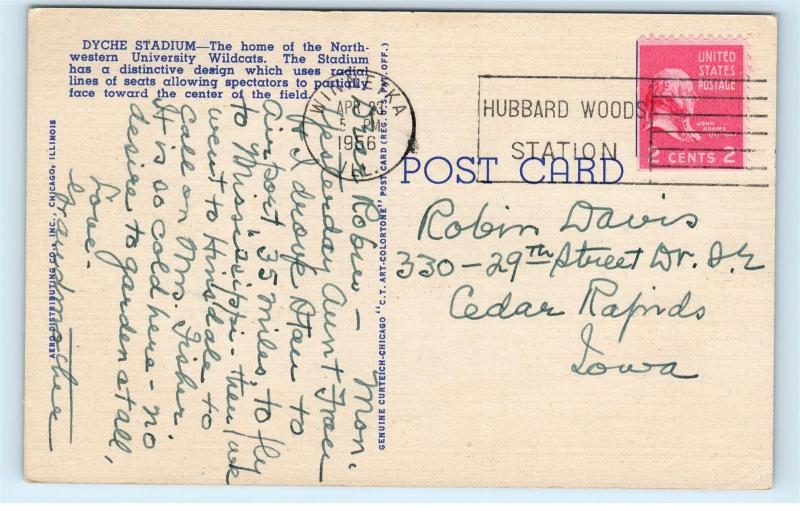 DYCHE STADIUM—The home of the North-
western University Wildcats. The Stadium
has a distinctive design which uses radial
lines of seats allowing spectators to partially
face toward the center of the field.
AERO DISTRIBUTING CO., INC., CHICAGO, ILLINOIS
GENUINE CURTEICH-CHICAGO "C.T. ART-COLORTONE" POST CARD (REG. U.S. PAT. OFF.)
WINNETKA
APR 23
5 PM
1956
ILL.
HUBBARD WOODS
STATION
UNITED
STATES
POSTAGE
JOHN
ADAMS
2 CENTS 2
POST CARD
Robin Davis
330-29th Street Dr. S.E
Cedar Rapids
Iowa
Mon.
Dear Robin—
Yesterday Aunt Fran
& I drove Stan to
Airport 35 miles, to fly
to Mississippi - then we
went to Hinsdale to
Call on Mrs. Fisher
It is so cold here - no
desire to garden at all,
Love -
Grandmother